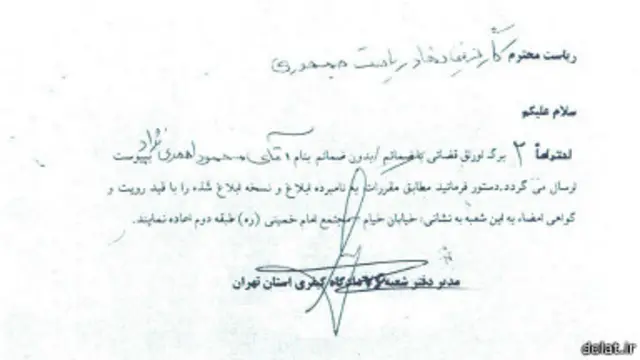 ریاست محترم کارگزینی نهاد ریاست جمهوری
سلام علیکم
احتراماً ۲ برگ اوراق قضائی باضمائم/بدون ضمائم بنام آقای محمود احمدی نژاد بپیوست
ارسال می گردد.دستور فرمائید مطابق مقررات به نامبرده ابلاغ و نسخه ابلاغ شده را با قید رویت و
گواهی امضاء به این شعبه به نشانی: خیابان خیام - مجتمع امام خمینی (ره) طبقه دوم اعاده نمایند.
مدیر دفتر شعبه ۷۶ دادگاه کیفری استان تهران
dolat.ir